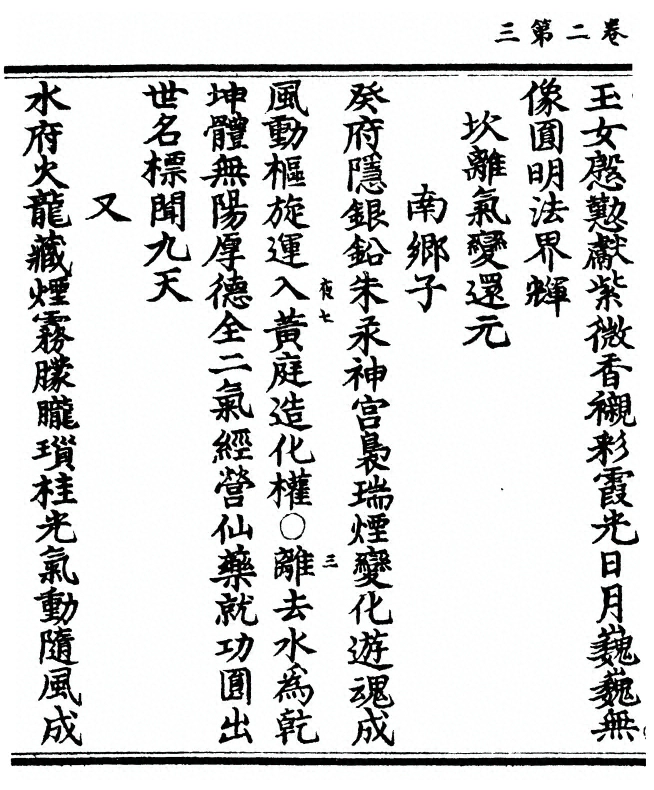 三第二卷
玉女慇懃獻紫微香襯彩霞光日月巍巍無
像圓明法界輝
坎離氣變還元
南鄉子
癸府隱銀鉛朱汞神宮裊瑞煙變化遊魂成
風動樞旋運入黃庭造化權〇離去水為乾
夜七
三
坤體無陽厚德全二氣經營仙藥就功圓出
世名標聞九天
又
水府火龍藏煙霧朦朧瑣桂光氣動隨風成